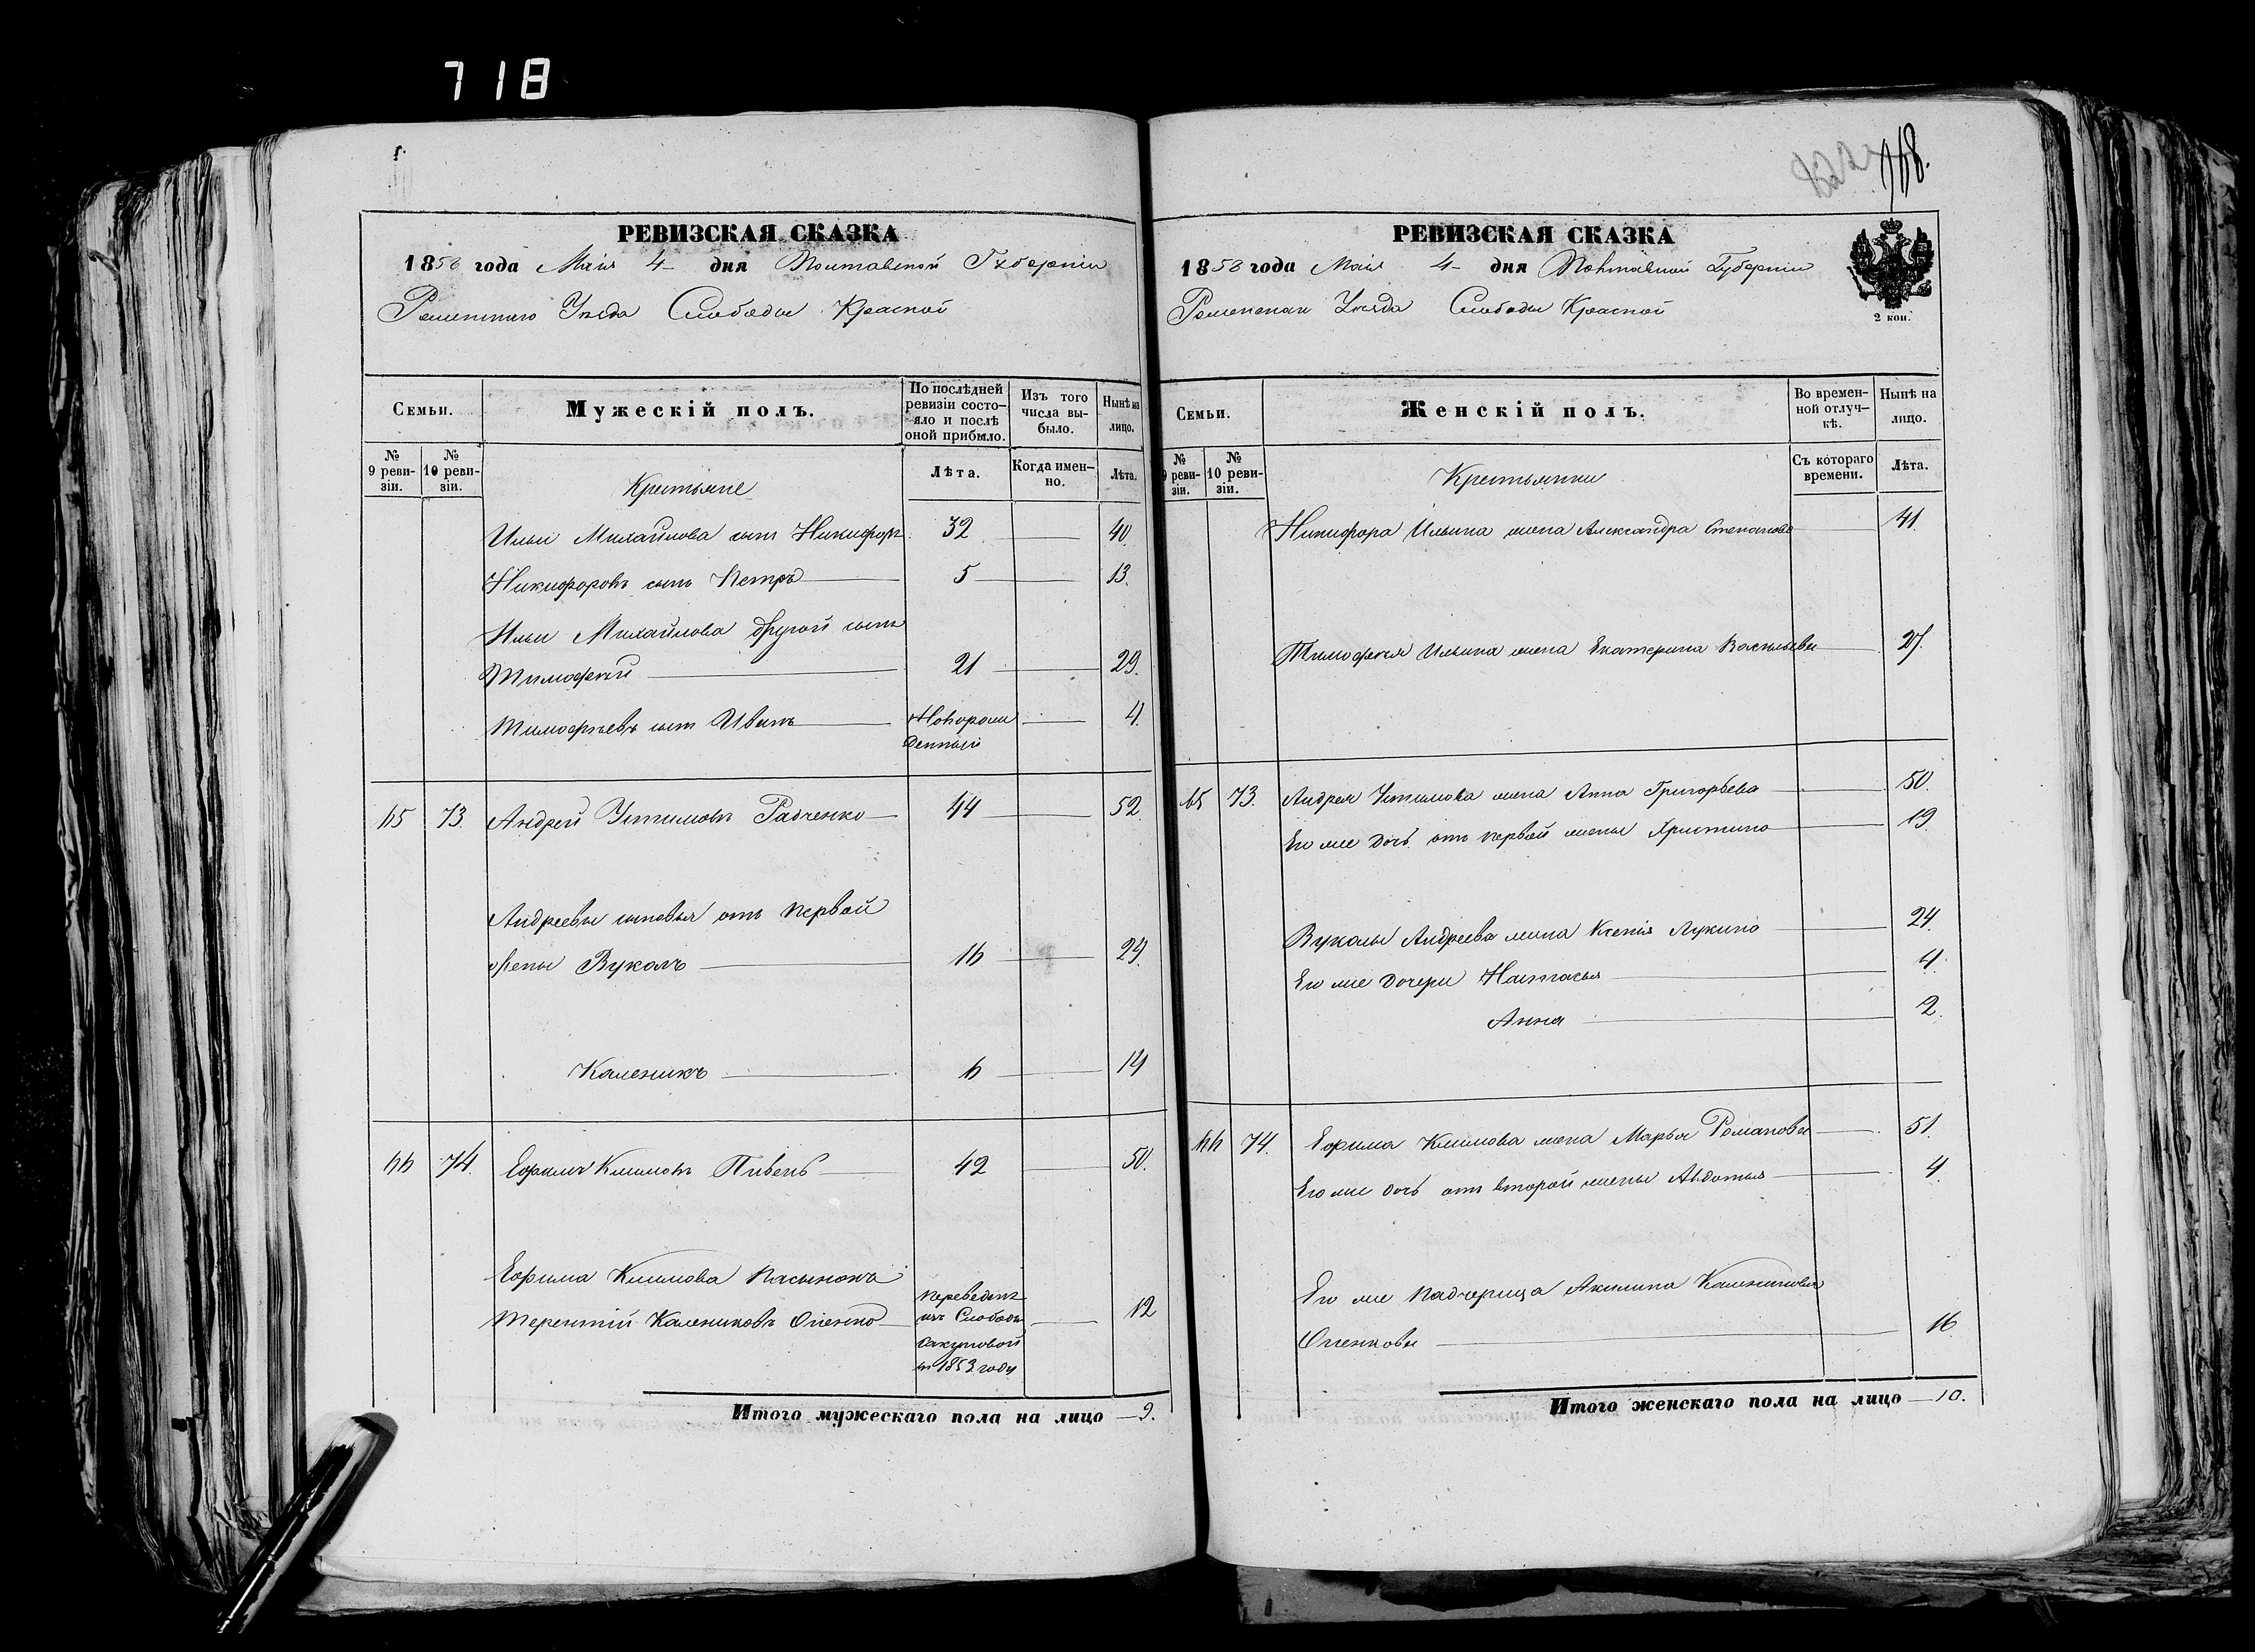 718
968.
РЕВИЗСКАЯ СКАЗКА
1858 года Маія 4 дня Полтавской Губерніи
Роменскаго Уезда Слободы Красной
Семьи.
Мужескій полъ.
По послѣдней ревизіи состо-
яло и послѣ оной прибыло.
Изъ того числа вы-
было.
Нынѣ на лицо.
№ 9 реви-
зіи.
№ 10 реви-
зіи.
Крестьяне
Лѣта.
Когда имен-
но.
Лѣта.
Ильи Михайлова сынъ Никифоръ 32 40
Никифоровъ сынъ Петръ 5 13.
Ильи Михайлова другой сынъ
Тимофей 21 29.
Тимофѣевъ сынъ Иванъ Новорож 4.
денный
65 73. Андрей Устимовъ Радченко 44 52.
Андреевы сыновья отъ первой
жены Вуколъ 16 24.
Каленикъ 6 14
66 74. Ефимъ Климовъ Пивень 42 50.
Ефима Климова пасынокъ
Терентий Калениковъ Опенко 12
переведенъ
изъ Слободы
в 1853 году
Итого мужескаго пола на лицо 9.
РЕВИЗСКАЯ СКАЗКА
1858 года Маія 4 дня Полтавской Губерніи
Роменскаго Уезда Слободы Красной
2 коп.
Семьи.
Женскій полъ.
Во времен-
ной отлуч-
кѣ.
Нынѣ на лицо.
№ 9 реви-
зіи.
№ 10 реви-
зіи.
Крестьянки
Съ котораго времени.
Лѣта.
Никифора Ильина жена Александра Степанова 41.
Тимофея Ильина жена Екатерина Васильева 27.
65 73. Андрея Устимова жена Анна Григорьева 50.
Его же дочь отъ первой жены Христина 19.
Вуколы Андреева жена Ксенія Лукина 24.
Его же дочери Настасья 4.
Анна 2.
66 74. Ефима Климова жена Марья Романова 51.
Его же дочь отъ второй жены Авдотья 4.
Его же падчерица Акилина Каленикова
Опенкова 16.
Итого женскаго пола на лицо 10.